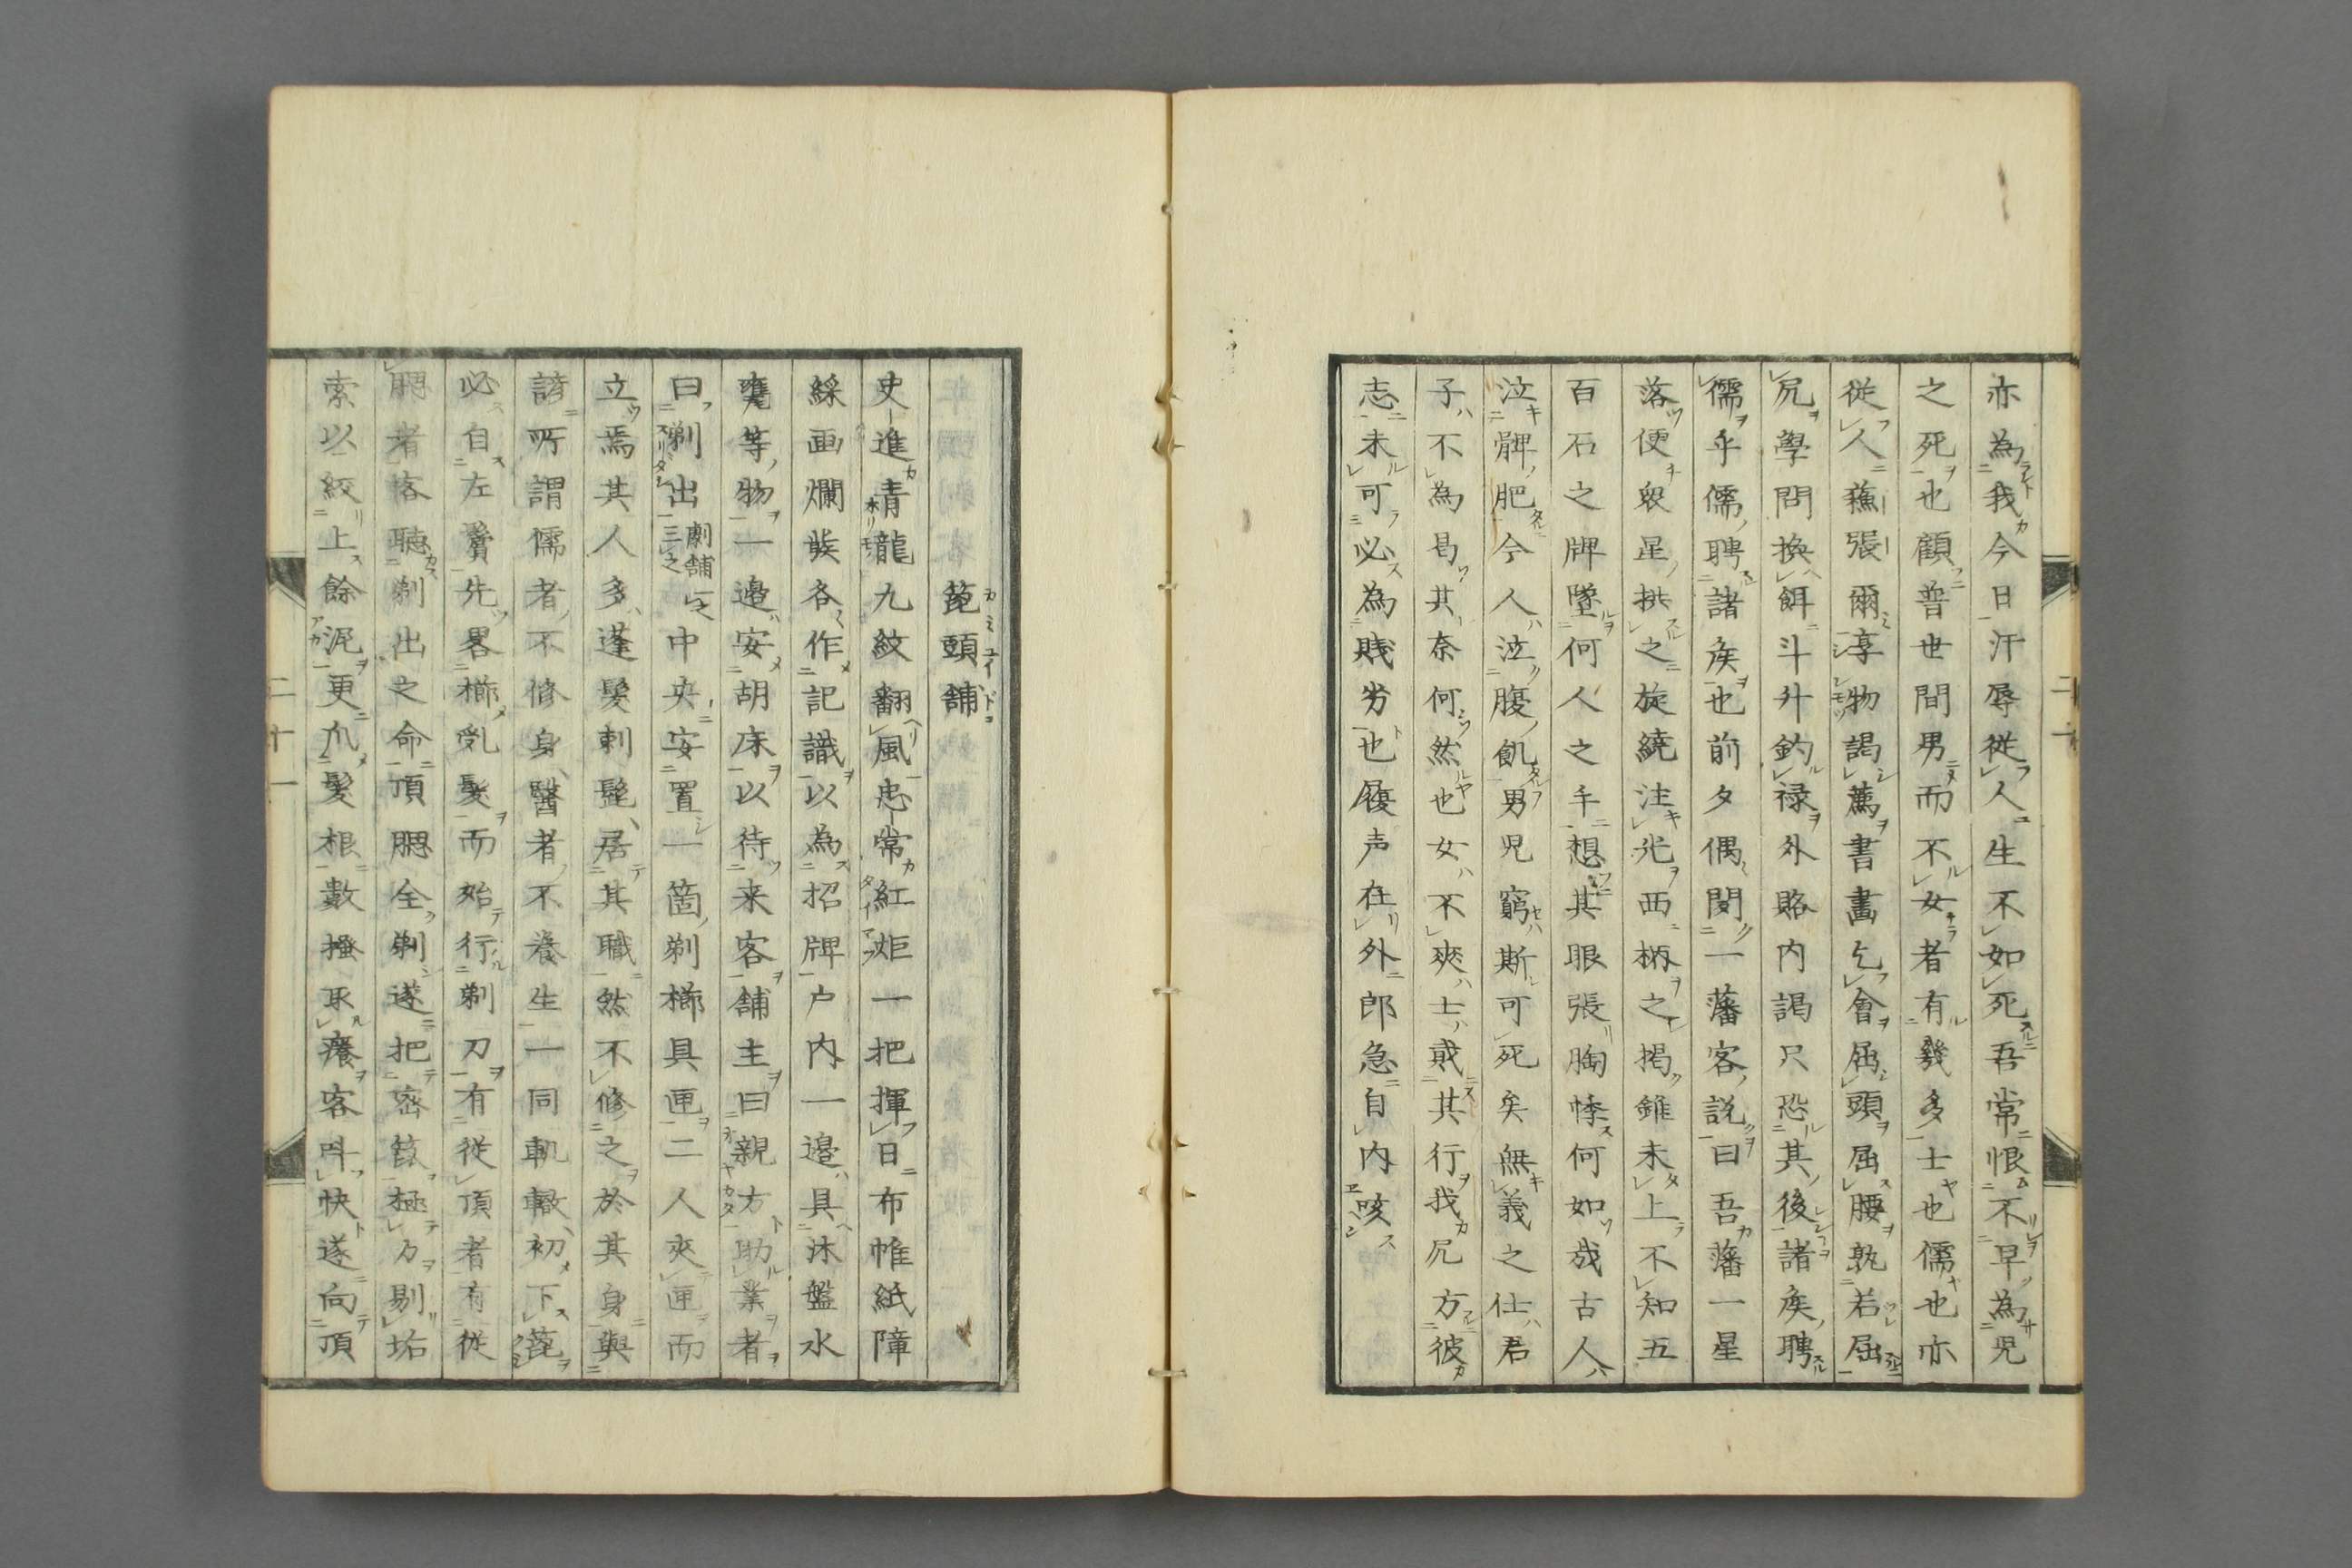 亦為我今日汗辱従人生不如死吾常恨不早為児
之死也顧普世間男而不女者有幾多士也儒也亦
従人蘓張爾享物謁薦書畵乞會屈頭屈腰孰若屈
尻學問換餌斗升釣禄外賂内謁只恐其後諸矦聘
儒乎儒聘諸矦也前夕偶聞一藩客説曰吾藩一星
落便衆星拱之旋繞注光西柄之掲錐未上不知五
百石之牌墜何人之手想其眼張胸悸何如哉古人
泣髀肥今人泣腹飢男児窮斯可死矣無義之仕君
子不為曷其奈何然也女不爽士貮其行我尻方彼
志未可必為賎劣也履声在外郎急自内咳
二十
箆頭舗
カミユイドコ
史進青龍九紋翻風忠常紅炬一把揮日布帷紙障
綵画爛𤉷各作記識以為招牌戸内一邉具沐盤水
甕等物一邉安胡床以待来客舗主曰親方助業者
曰剃出劇舗三之一之中央安置一箇剃櫛具匣二人夾匣而
立焉其人多蓬髪刺髭居其職然不修之於其身與
諺所謂儒者不修身醫者不養生一同軌轍初下箆
必自左鬢先畧櫛乱髪而始行剃刀有従頂者有従
腮者客聴剃出之命頂腮全剃遂把密篦極力剔垢
索以絞上餘泥更爪髪根數搔取癢客呌快遂向頂
二十一